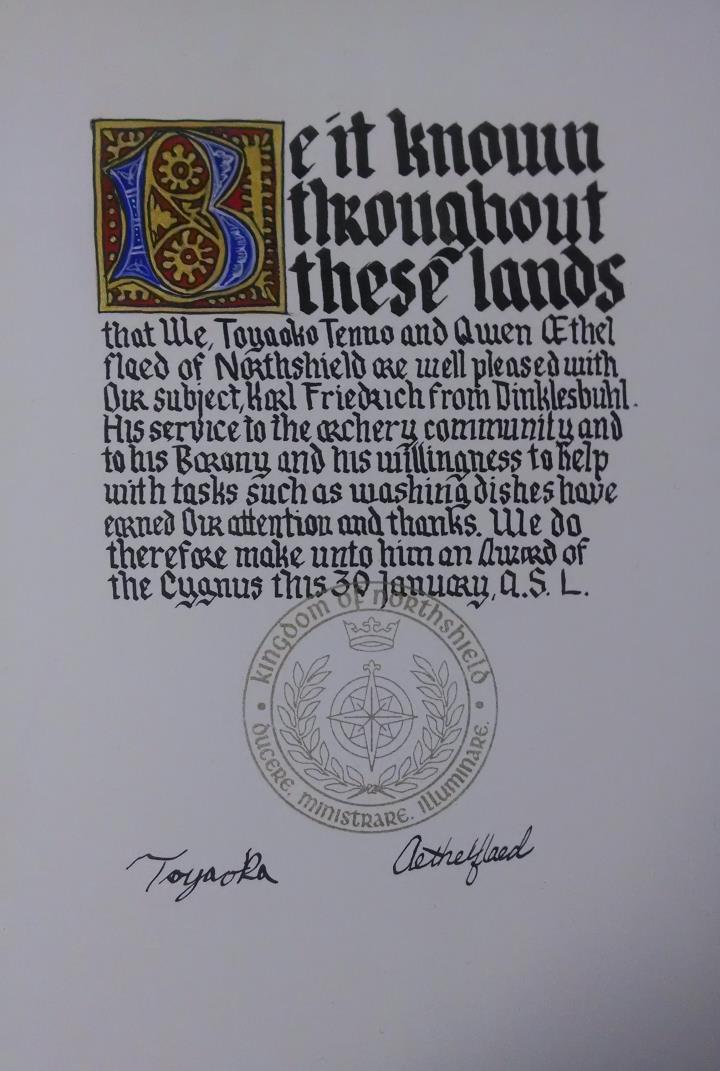 Be it known
throughout
these lands
that We, Toyaoko Tenno and Qwen Æthel
flaed of Northshield are well pleased with
Our subject, Karl Friedrich from Dinklesbuhl.
His service to the archery community and
to his Barony and his willingness to help
with tasks such as washing dishes have
earned Our attention and thanks. We do
therefore make unto him an Award of
the Cygnus this 30 January, A.S. L.
Kingdom of Northshield
Ducere. Ministrare. Illuminare.
Toyaoka
Aethelflaed